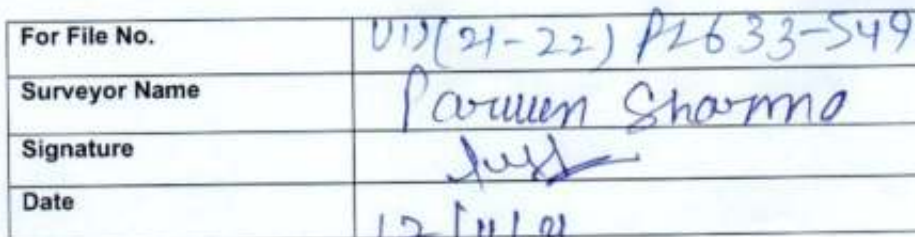 For File No. VIS(21-22) PL633-549
Surveyor Name Parveen Sharma
Signature
Date